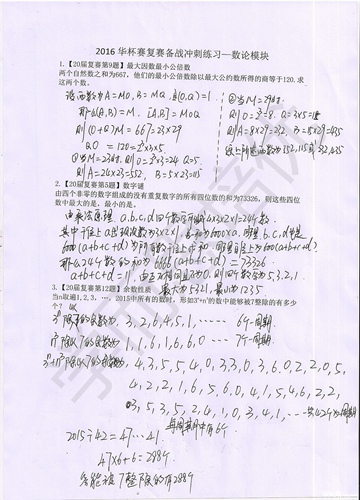 2016 华杯赛复赛备战冲刺练习—数论模块
1.【20届复赛第9题】最大因数最小公倍数
两个自然数之和为667，他们的最小公倍数除以最大公约数所得的商等于120.求
这两个数。
设两数为A=MO, B=MQ, 且(O,Q)=1
那么(A,B)=M. [A,B]=MOQ
则(O+Q)M=667=23×29
OQ=120=2³×3×5
①当M=23时, 则O=2³×3=24 Q=5.
则A=24×23=552, B=5×23=115
②当M=29时.
则O=2³=8. Q=3×5=15
则A=8×29=232. B=15×29=435
综上所述两数为552,115或232,435
2.【20届复赛第5题】数字谜
由四个非零的数字组成的没有重复数字的所有四位数的和为73326，则这些四位
数中最大的是，最小的是。
由乘法原理 a.b.c.d四个数字可组成4×3×2×1=24个数.
那么24个数的和为6666(a+b+c+d)=73326
a+b+c+d=11. 则四个数字为5,3,2,1.
最大为5321, 最小为1235
3.【20届复赛第12题】余数性质
当n取遍1,2,3，…，2015中所有的数时，形如3ⁿ+n³的数中能够被7整除的有多少
个？
3ⁿ除以7的余数为, 3, 2, 6, 4, 5, 1, …… 6个一周期
1, 1, 6, 1, 6, 6, 0 …… 7个一周期.
4, 3, 5, 5, 4, 0, 3, 3, 0, 3, 6, 0, 2, 2, 0, 5,
4, 2, 2, 1, 6, 5, 6, 0, 4, 1, 5, 4, 6, 2, 2
3, 5, 3, 5, 2, 4, 1, 0, 3, 4, 1, …共42个为周期
每周期中有6个
2015÷42=47…41.
47×6+6=288个